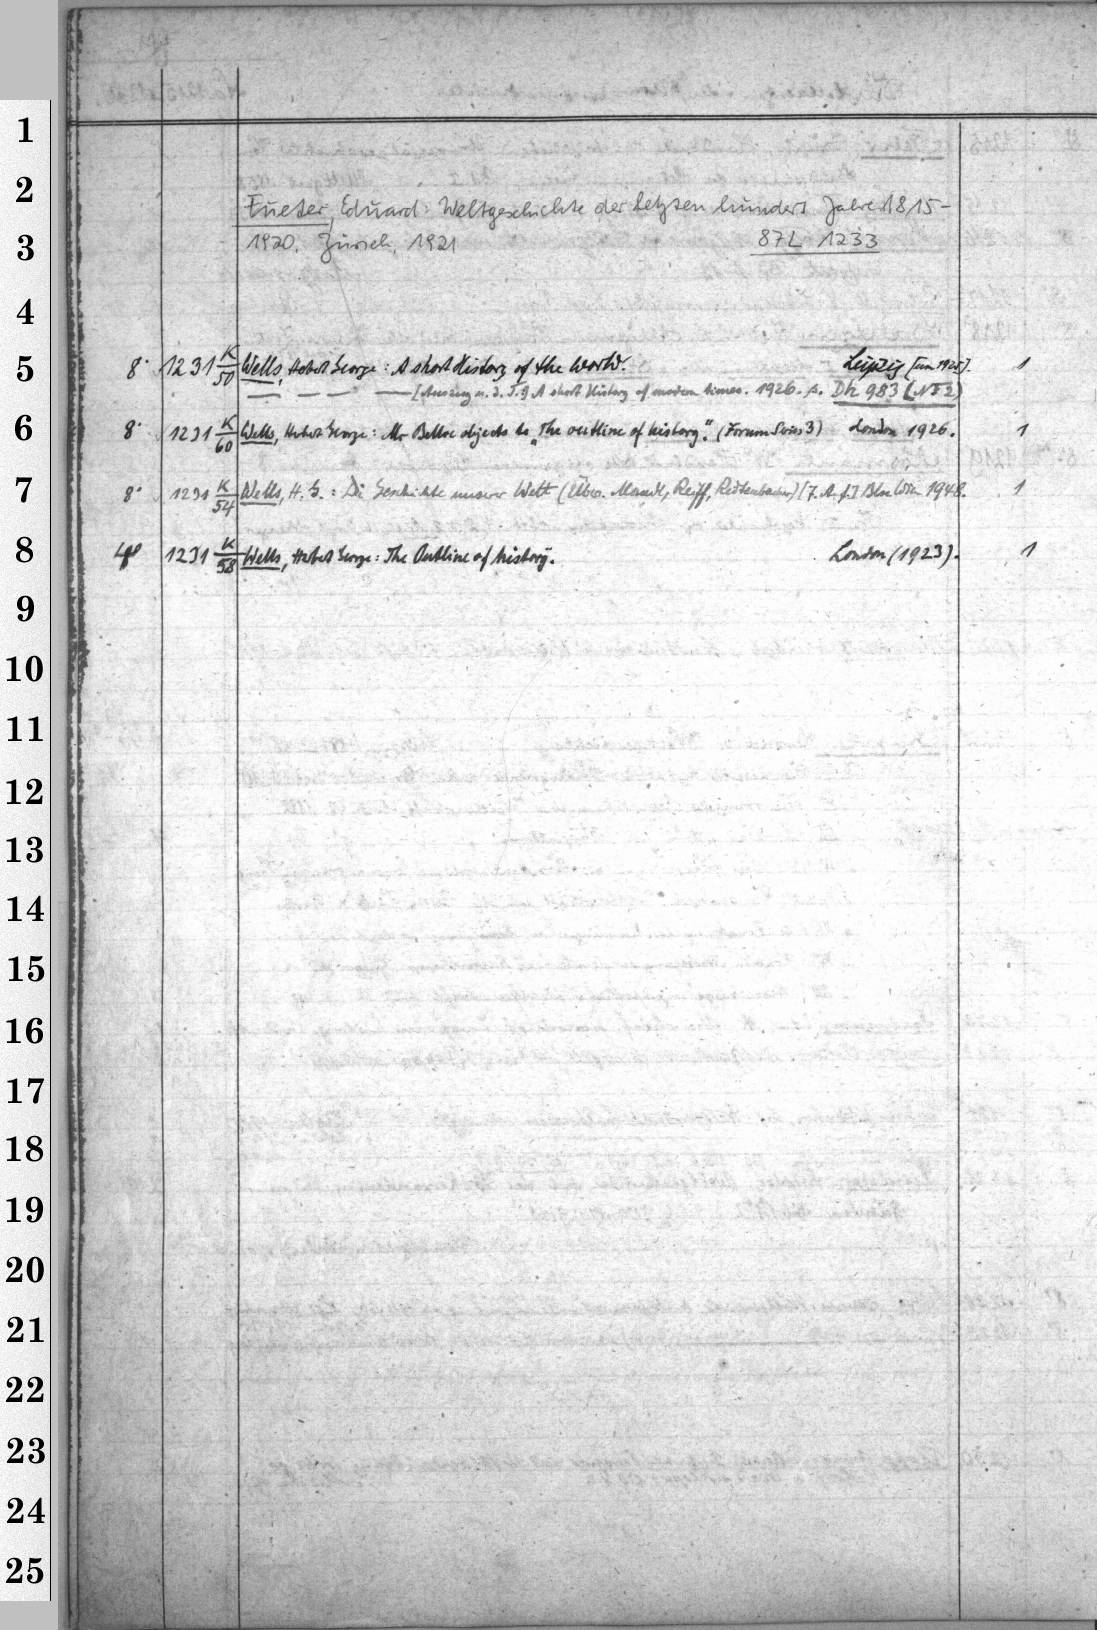 1
2
Fueter, Eduard: Weltgeschichte der letzten hundert Jahre 1815-
3
1920. Zürich, 1921 87L 1233
4
5
8° 1231 K/50 Wells, Herbert George: A short History of the World. Leipzig [um 1925]. 1
— — — — [Auszug u. d. T.:] A short History of modern times. 1926. s. Dh 983 (NF2)
6
8° 1231 K/60 Wells, Herbert George: Mr Belloc objects to „The outline of history." (Forum Series 3) London 1926. 1
7
8° 1231 K/54 Wells, H. G.: Die Geschichte unserer Welt (Übers. Mandl, Reiff, Redtenbacher) [7. A. f.] Bln Wien 1948. 1
8
4° 1231 K/58 Wells, Herbert George: The Outline of history. London (1923). 1
9
10
11
12
13
14
15
16
17
18
19
20
21
22
23
24
25